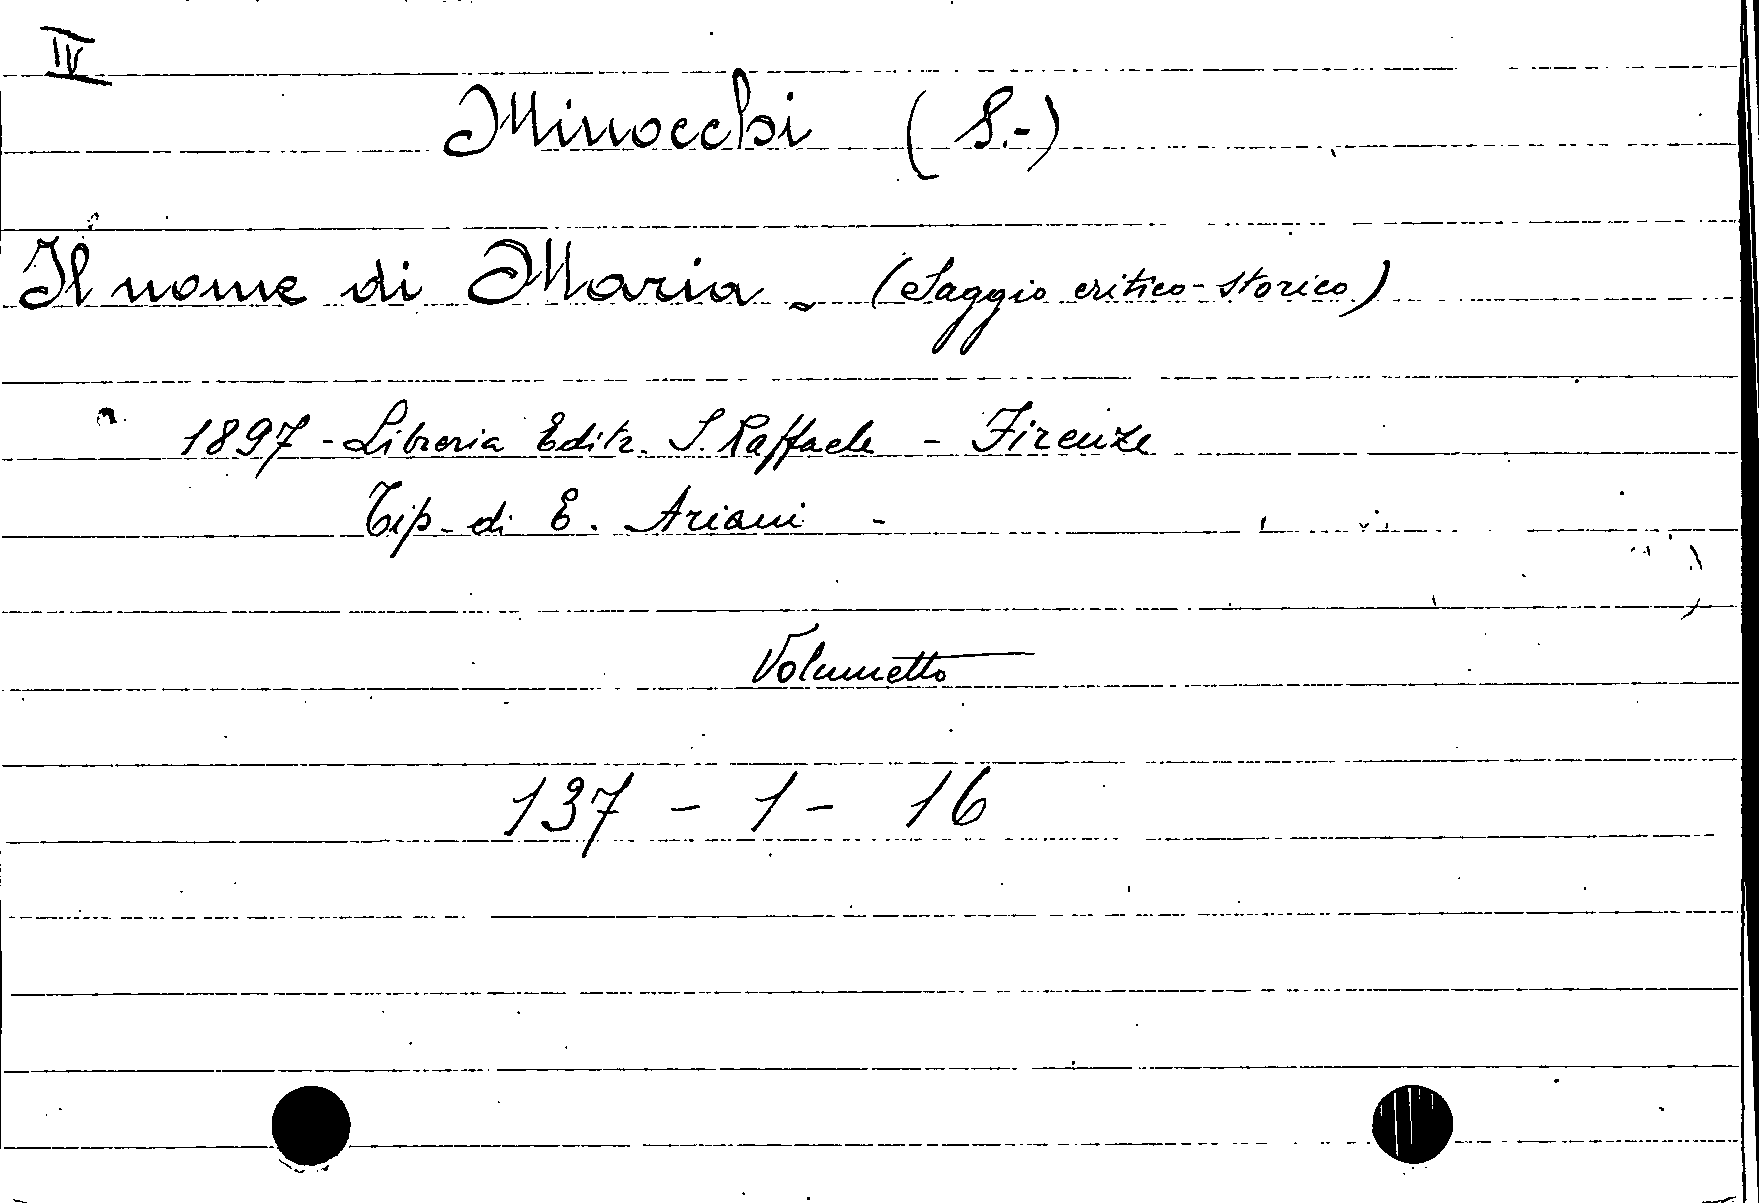 IV
Minocchi (S.-)
Il nome di Maria - (Saggio critico-storico)
1897 - Libreria Editr. S. Raffaele - Firenze
Tip. di E. Ariani -
Volumetto
137 - 1 - 16